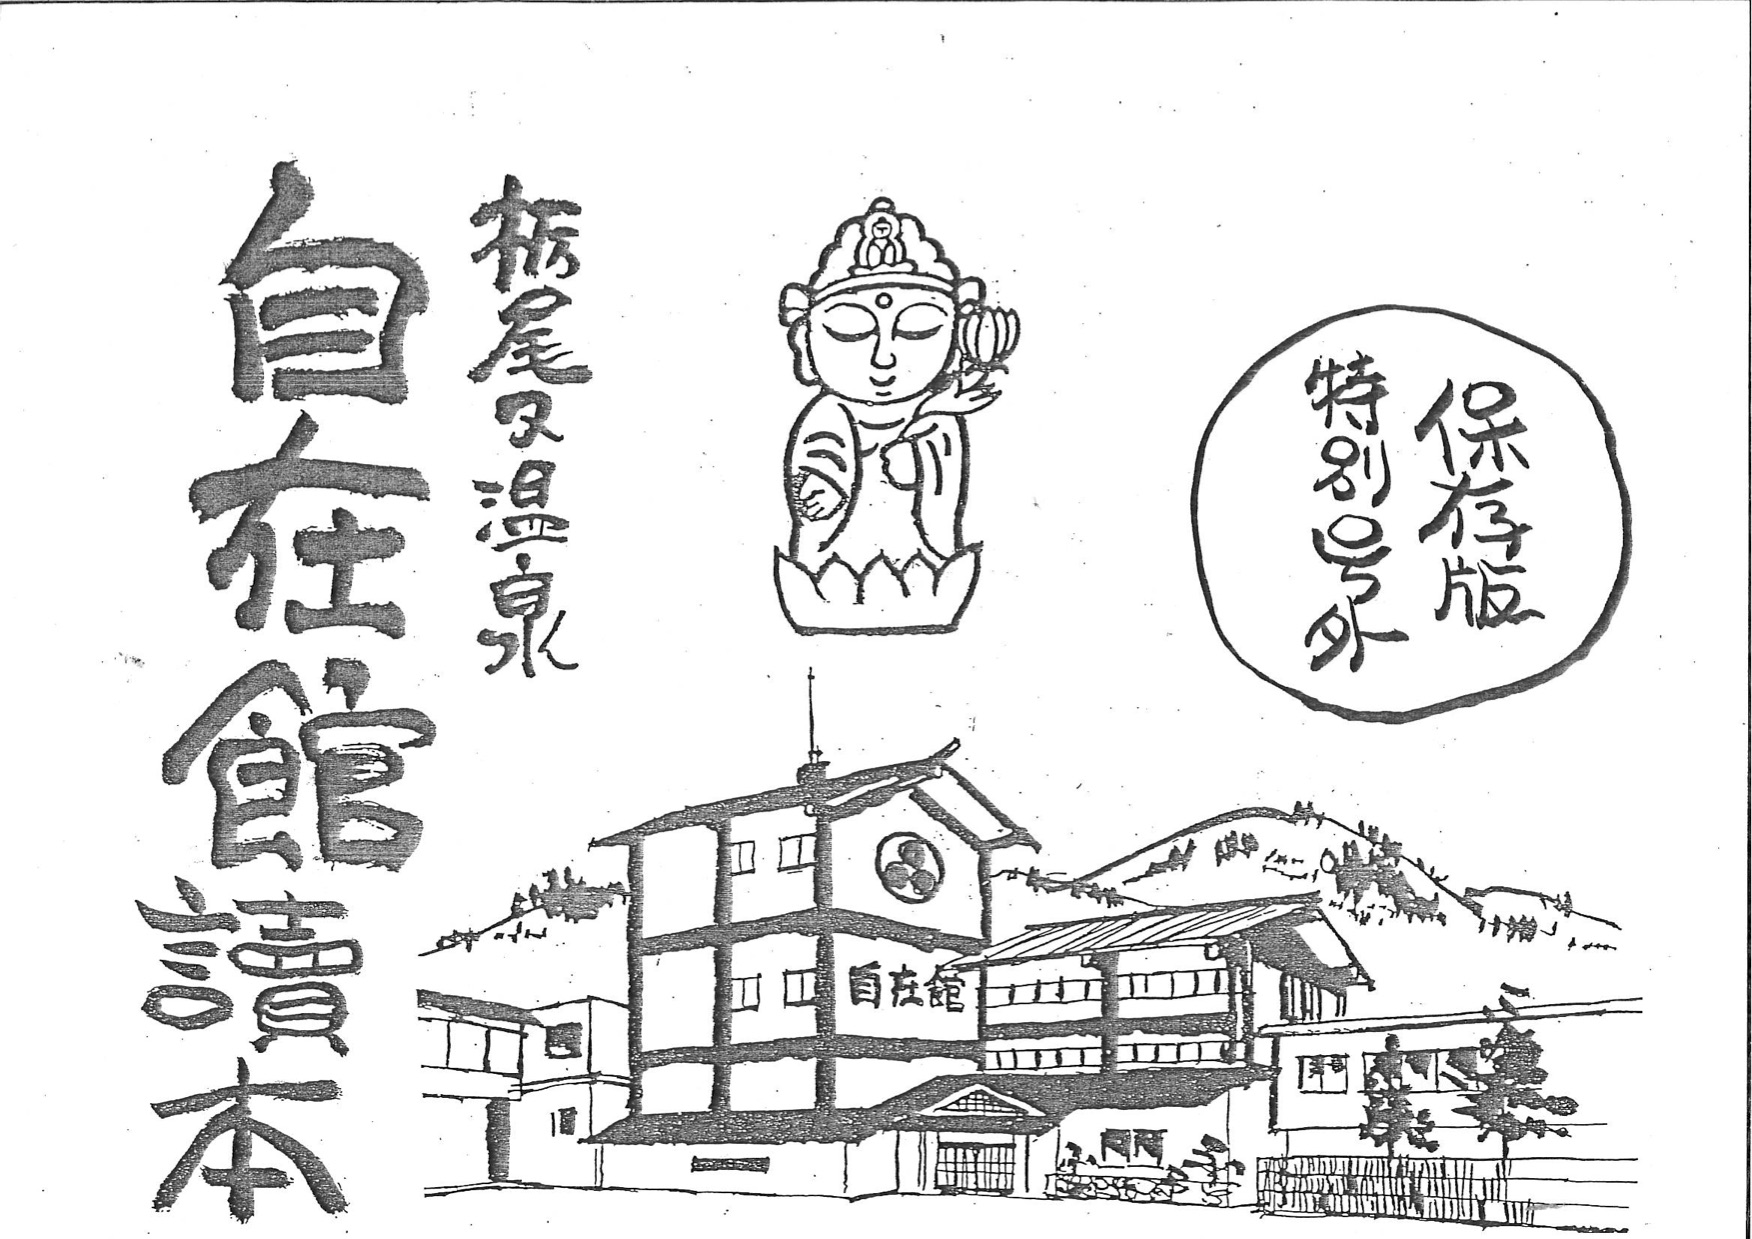 保存版
特別号外
栃尾又温泉
自在館讀本
自在館